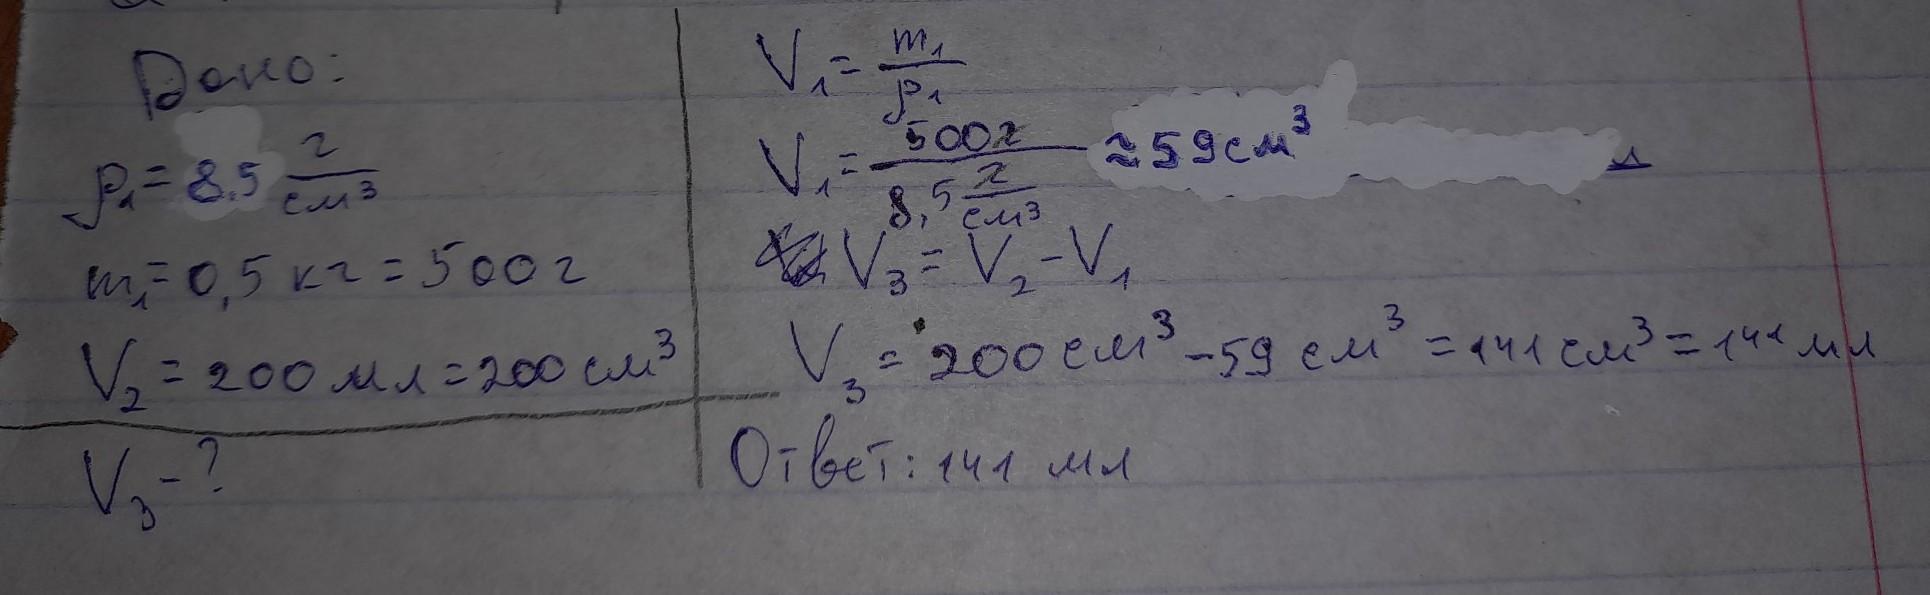 Дано:
ρ₁ = 8,5 г/см³
m₁ = 0,5 кг = 500 г
V₂ = 200 мл = 200 см³
V₃ - ?
V₁ = m₁/ρ₁
V₁ = 500 г / 8,5 г/см³ ≈ 59 см³
V₃ = V₂ - V₁
V₃ = 200 см³ - 59 см³ = 141 см³ = 141 мл
Ответ: 141 мл